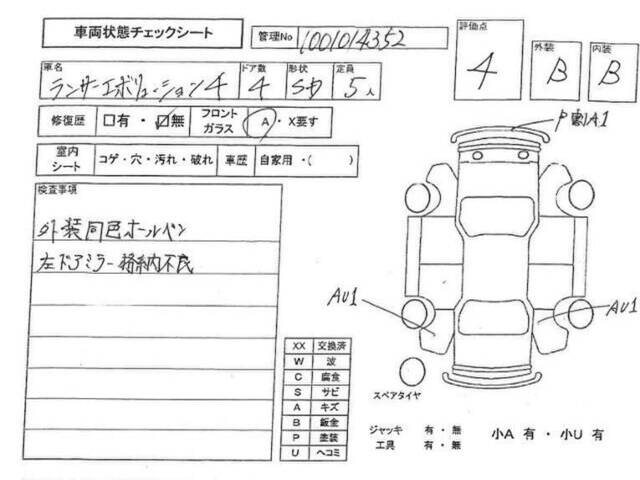 車両状態チェックシート
管理No 1001014352
評価点 4
外装 B
内装 B
車名 ランサーエボリューション4
ドア数 4
形状 SD
定員 5人
修復歴 □有・☑無
フロントガラス A・X要す
室内シート コゲ・穴・汚れ・破れ
車歴 自家用・( )
検査事項
外装同色オールペン
左ドアミラー格納不良
P割A1
AU1
AU1
XX 交換済
W 波
C 腐食
S サビ
A キズ
B 鈑金
P 塗装
U ヘコミ
スペアタイヤ
ジャッキ 有・無
工具 有・無
小A 有・小U 有